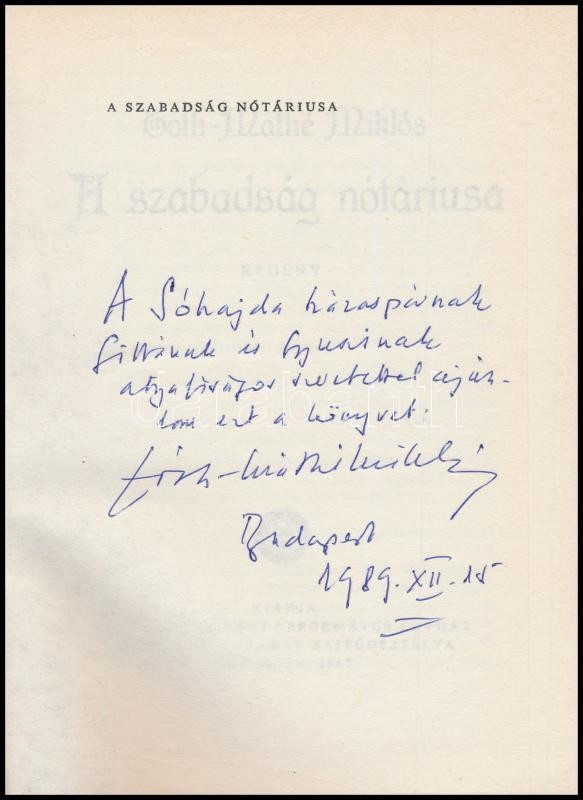 A SZABADSÁG NÓTÁRIUSA
Tóth-Máthé Miklós
A szabadság nótáriusa
REGÉNY
A Sóhajda házaspárnak
Gittának és Gyusinak
atyafiságos szeretettel aján-
lom ezt a könyvet:
darabanth
Tóth-Máthé Miklós
Budapest
1989. XII. 15
KIADJA
REFORMÁTUS EGYHÁZ
SAJTÓOSZTÁLYA